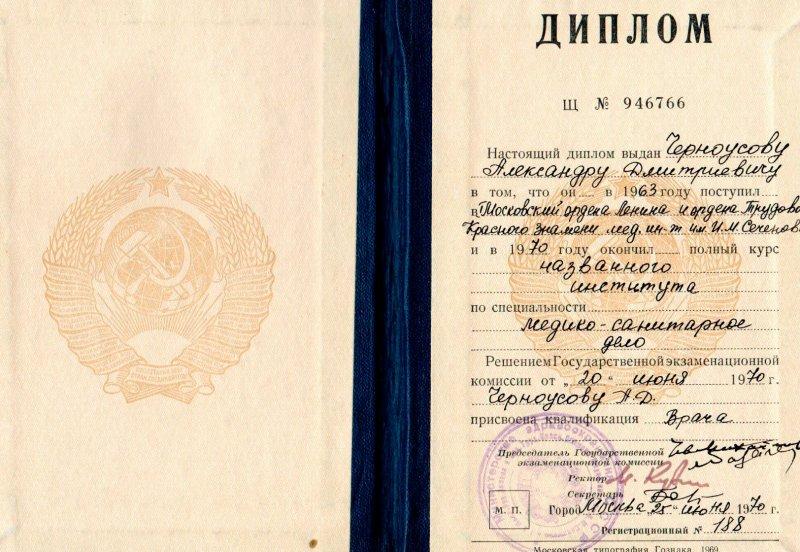 ДИПЛОМ
Щ № 946766
Настоящий диплом выдан Черноусову
Александру Дмитриевичу
в том, что он в 1963 году поступил
в Московский ордена Ленина и ордена Трудово
Красного Знамени мед. ин-т им. И.М. Сеченов
и в 1970 году окончил полный курс
названного
института
по специальности
медико-санитарное
дело
Решением Государственной экзаменационной
комиссии от „20“ июня 1970 г.
Черноусову А.Д.
присвоена квалификация Врача
Председатель Государственной
экзаменационной комиссии
Ректор
Секретарь
М. П. Город Москва „25“ июня 1970 г.
Регистрационный № 188
Московская типография Гознака. 1969